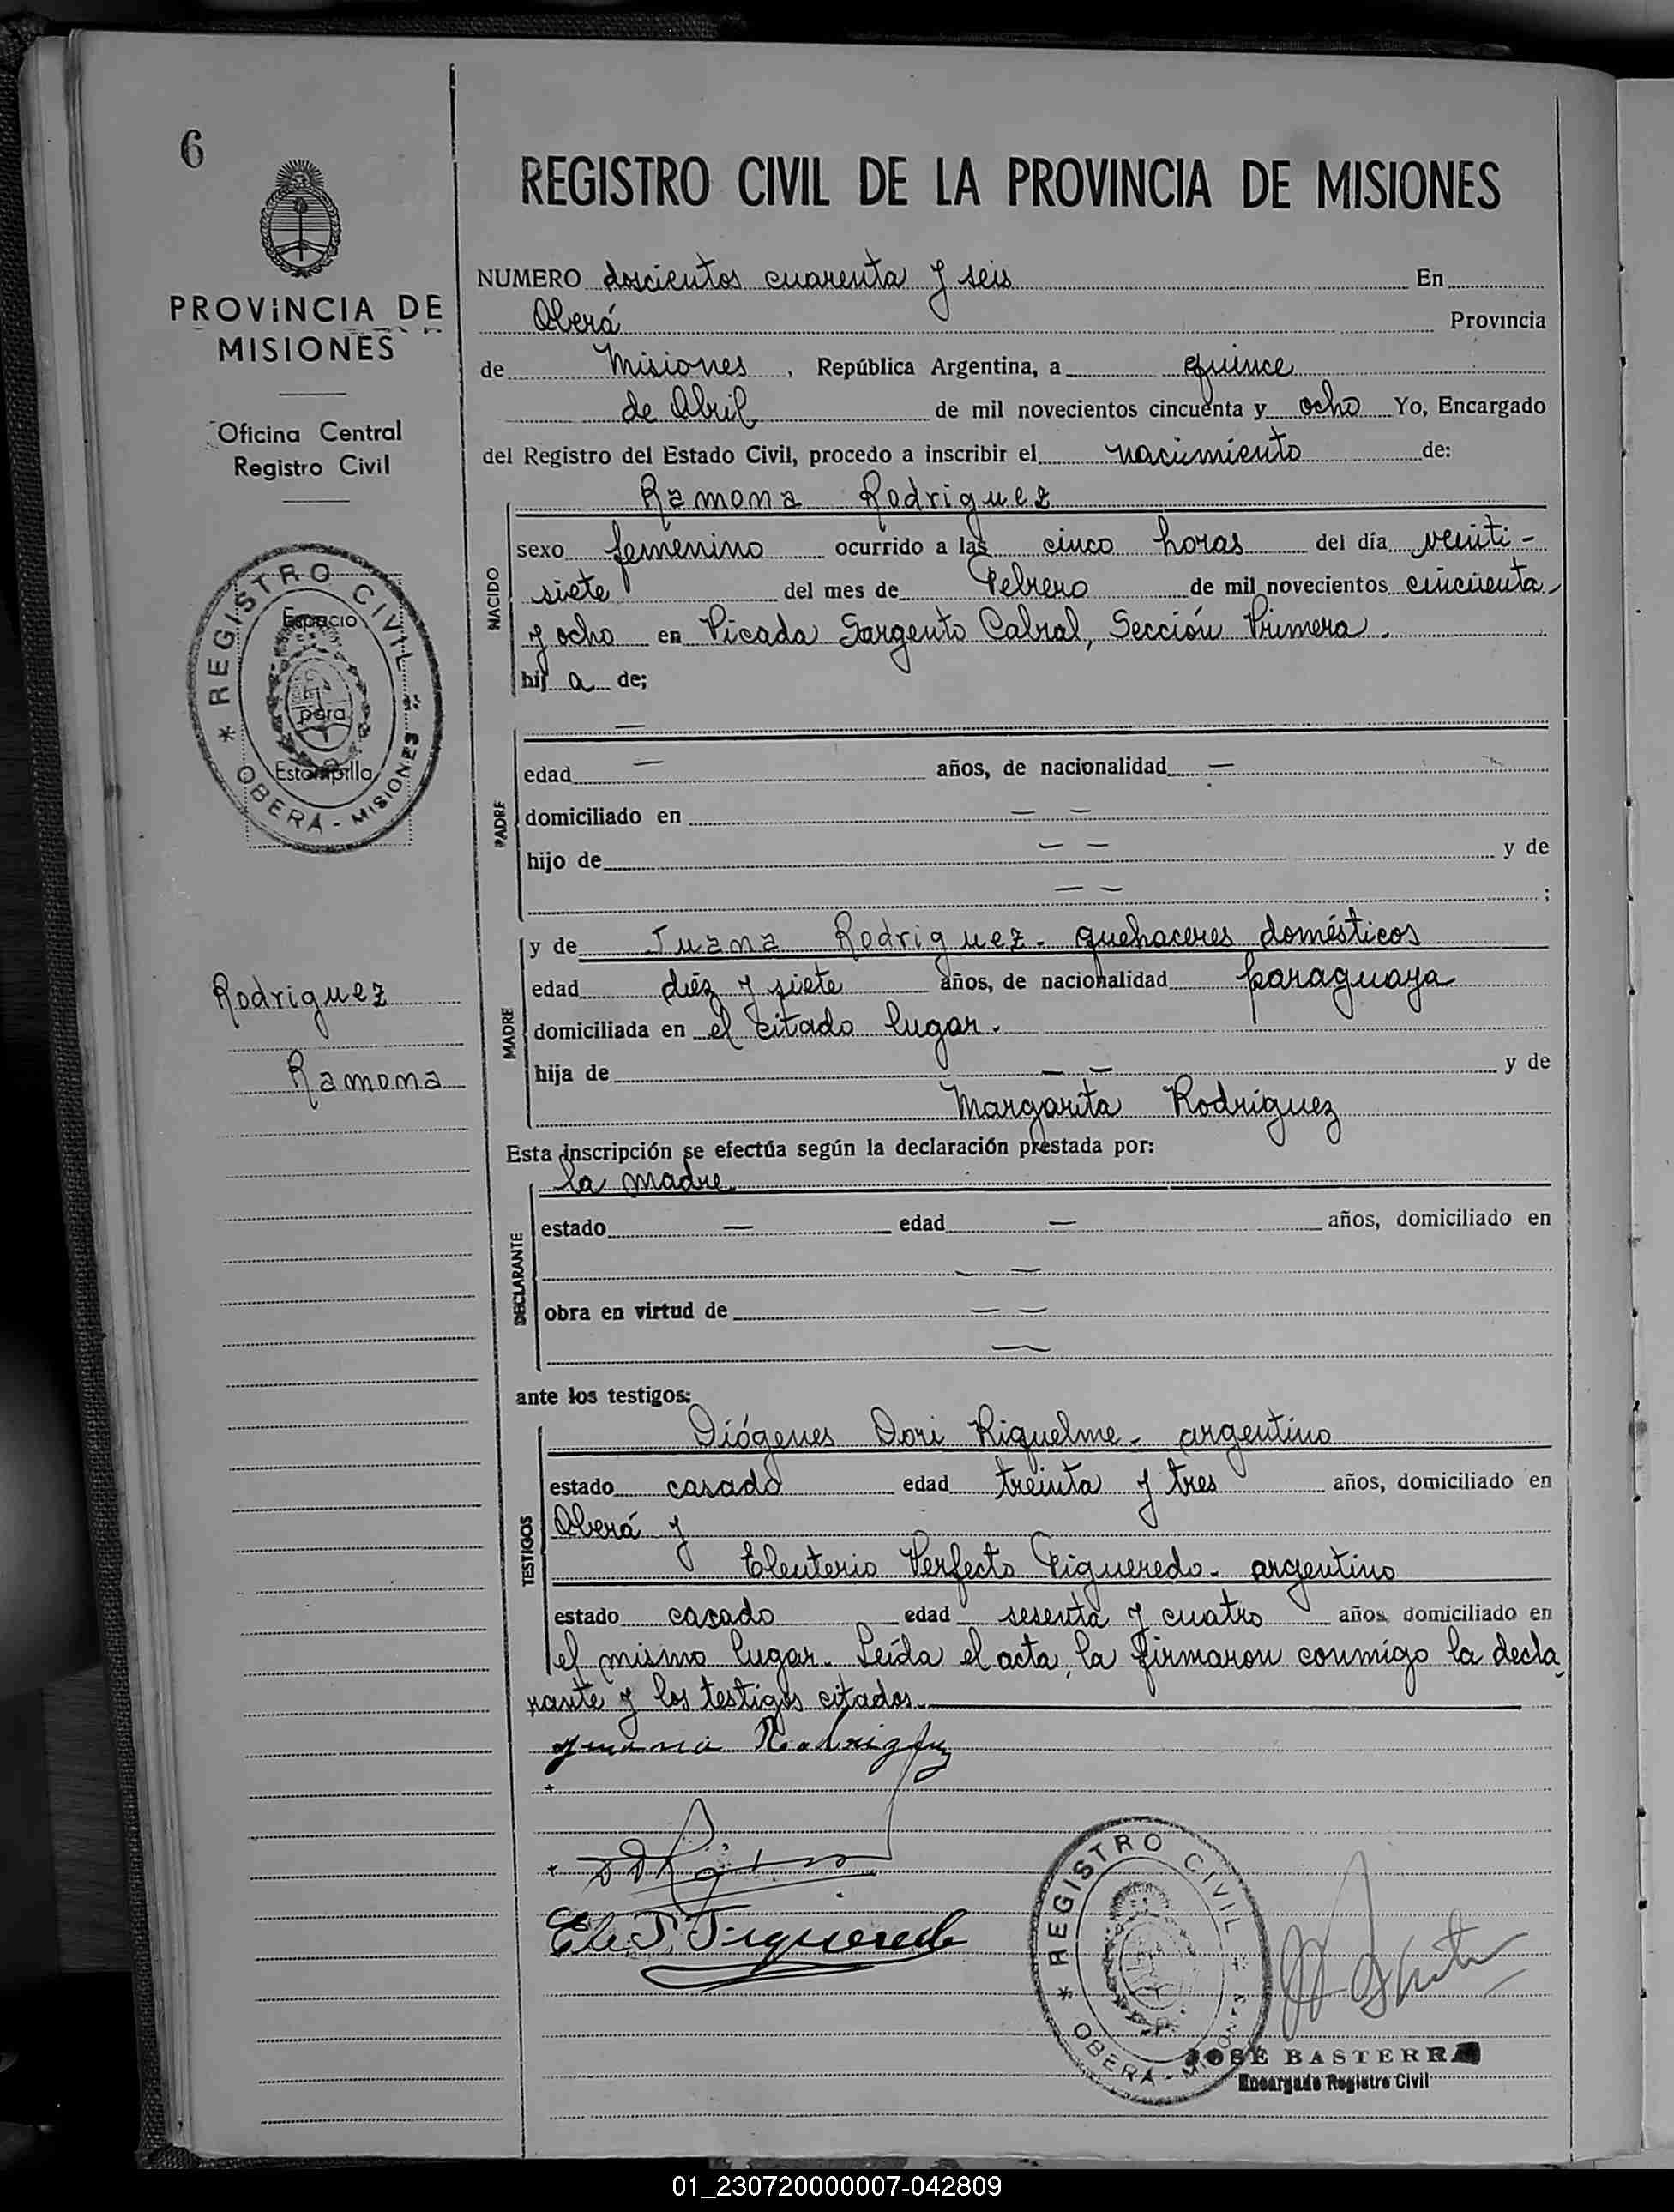 6
PROVINCIA DE
MISIONES
Oficina Central
Registro Civil
* REGISTRO CIVIL *
OBERÁ - MISIONES
Espacio
para
Estampilla
Rodriguez
Ramona
REGISTRO CIVIL DE LA PROVINCIA DE MISIONES
NUMERO doscientos cuarenta y seis En
Oberá Provincia
de Misiones, República Argentina, a quince
de Abril de mil novecientos cincuenta y ocho Yo, Encargado
del Registro del Estado Civil, procedo a inscribir el nacimiento de:
NACIDO
Ramona Rodriguez
sexo femenino ocurrido a las cinco horas del día veinti-
siete del mes de Febrero de mil novecientos cincuenta
y ocho en Picada Sargento Cabral, Sección Primera.
hij a de;
PADRE
—
edad — años, de nacionalidad —
domiciliado en — —
hijo de — — y de
— — ;
MADRE
y de Juana Rodriguez - quehaceres domésticos
edad diéz y siete años, de nacionalidad paraguaya
domiciliada en el citado lugar.
hija de — — y de
Margarita Rodriguez
Esta inscripción se efectúa según la declaración prestada por:
DECLARANTE
la madre
estado — edad — años, domiciliado en
— —
obra en virtud de — —
—
ante los testigos:
TESTIGOS
Diógenes Dori Riquelme - argentino
estado casado edad treinta y tres años, domiciliado en
Oberá y
Eleuterio Perfecto Figueredo - argentino
estado casado edad sesenta y cuatro años domiciliado en
el mismo lugar. Leída el acta, la firmaron conmigo la decla
rante y los testigos citados.
Juana Rodriguez
Ele P. Figueredo
* REGISTRO CIVIL *
OBERÁ - MISIONES
JOSÉ BASTERRA
Encargado Registro Civil
01_230720000007-042809